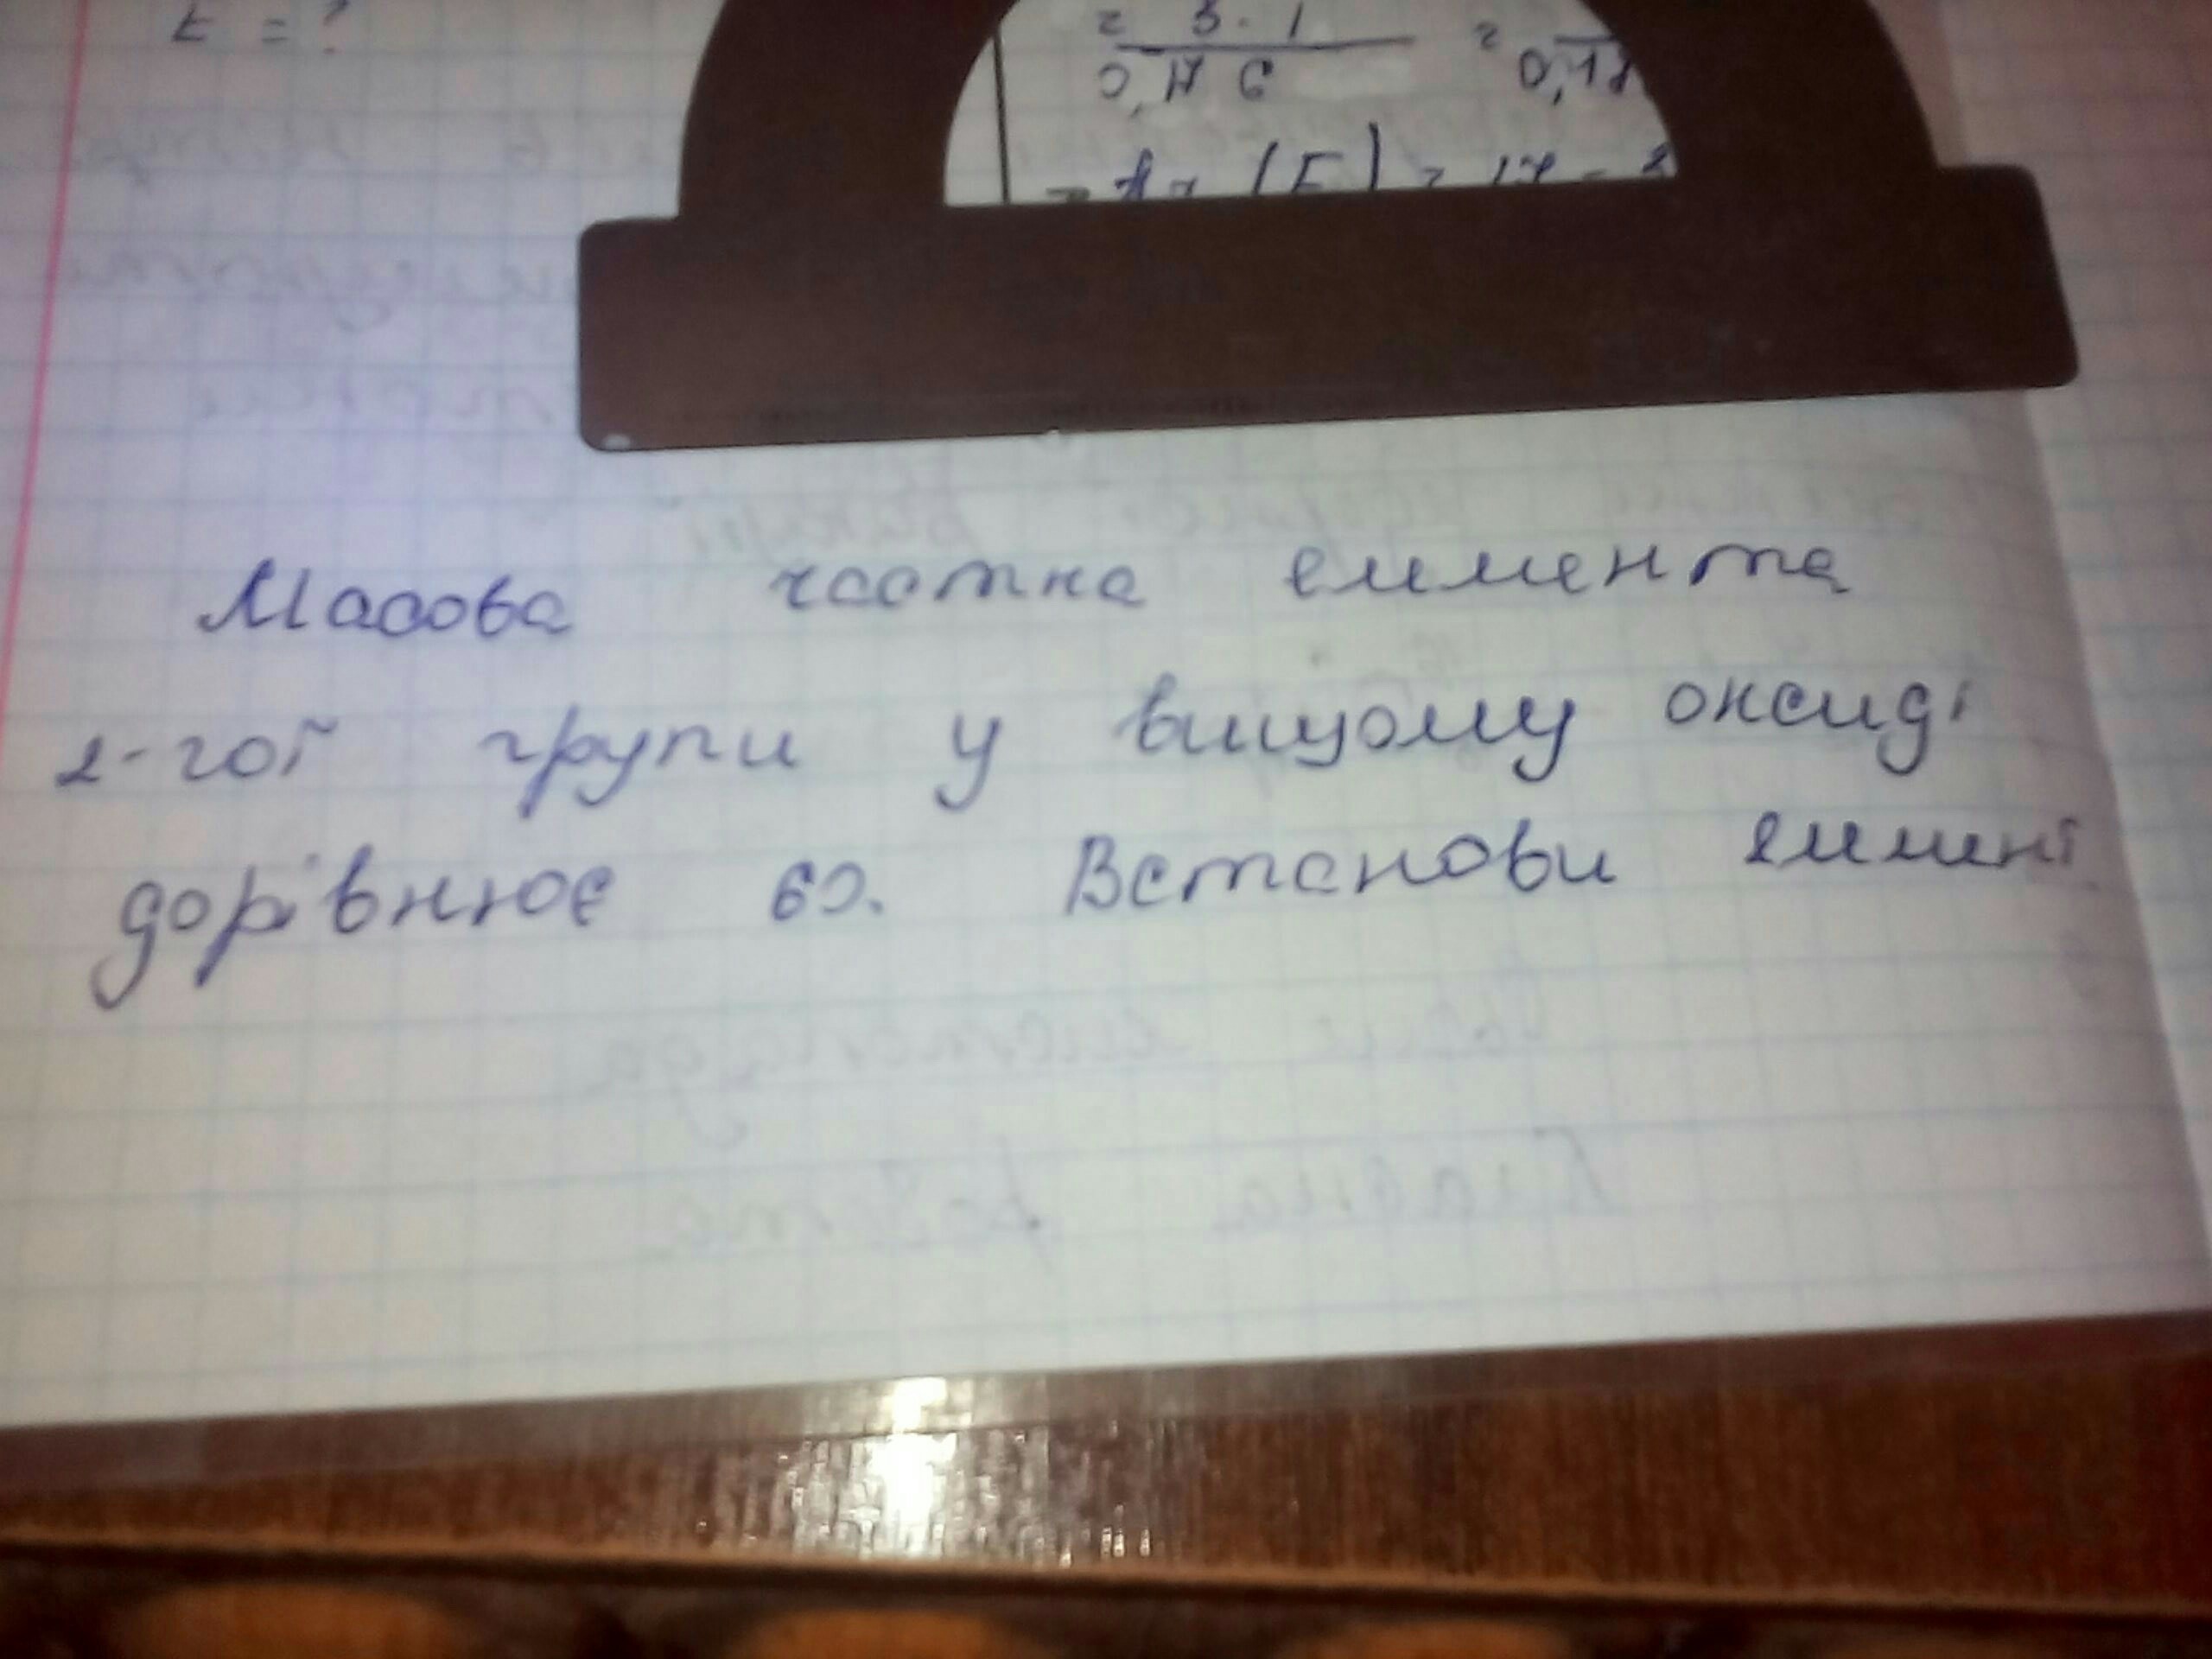 = ?
= 3 · 1
0,176
Масова частка елемента
2-гої групи у вищому оксиді
дорівнює 60. Встанови елемент